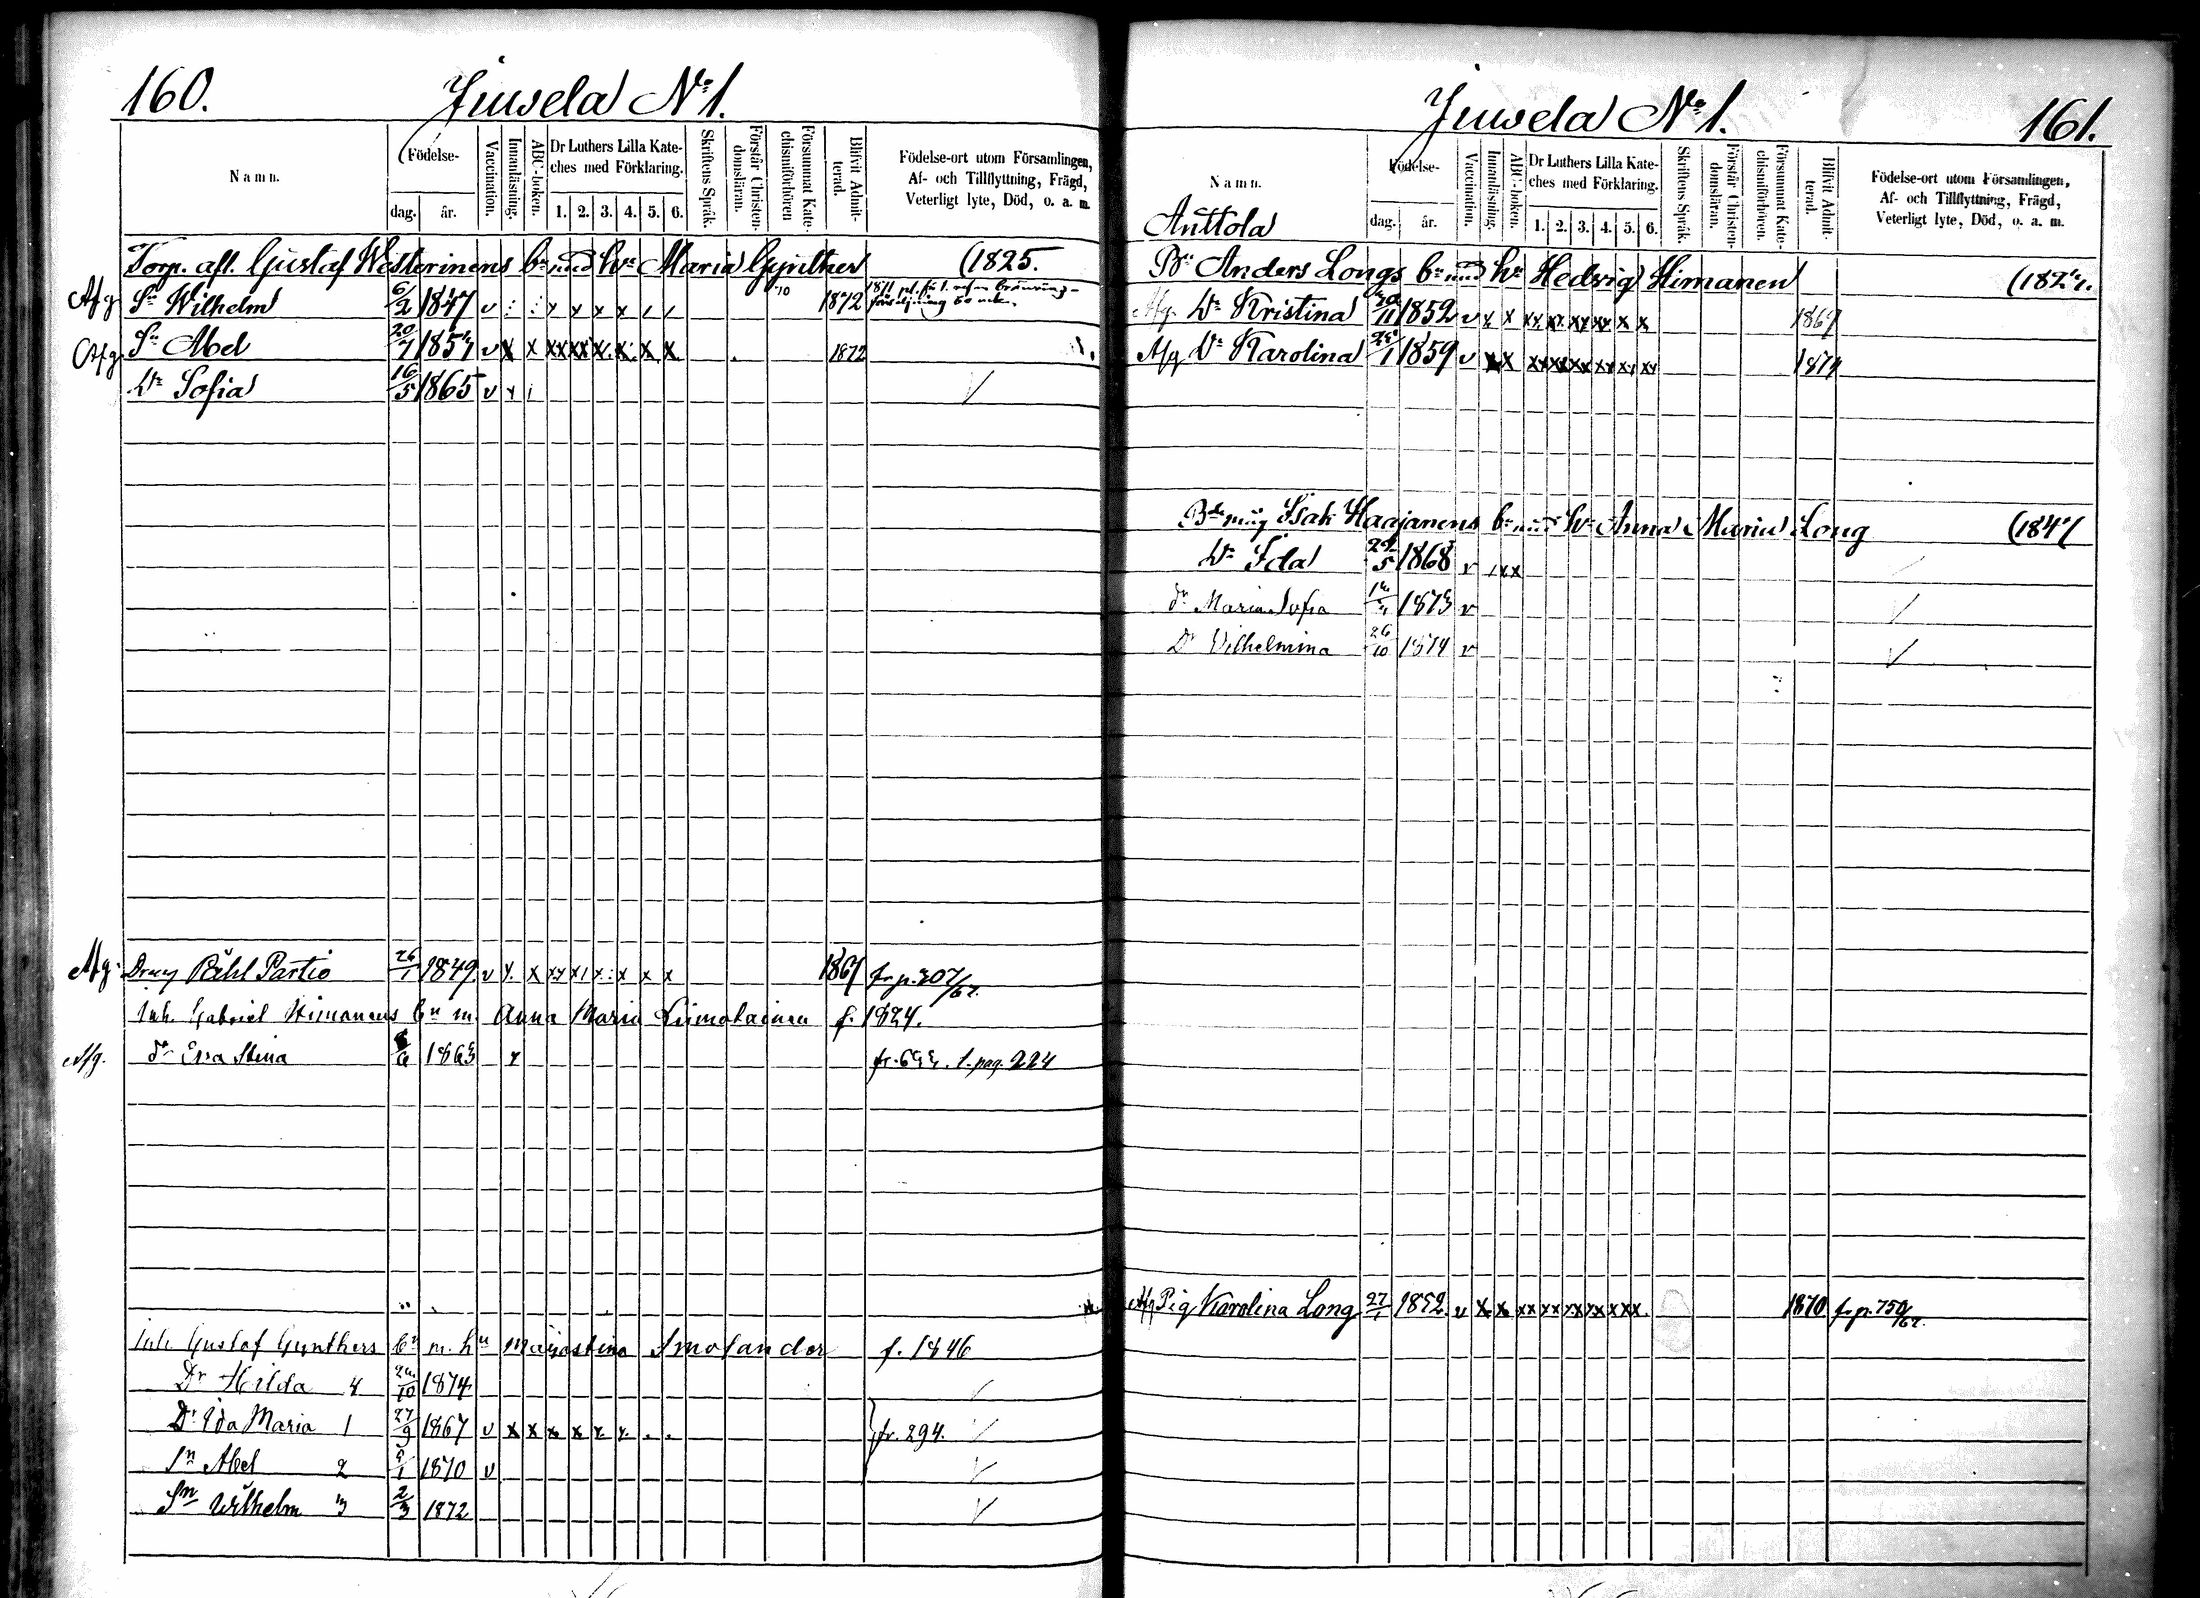 160.
Juvela No 1.
Namn.
Födelse-
dag.
år.
Vaccination.
Innanläsning.
ABC-boken.
Dr Luthers Lilla Kate-
ches med Förklaring.
1. 2. 3. 4. 5. 6.
Skriftens Språk.
Förstår Christen-
domsläran.
Försummat Kate-
chismiförhören
Blifvit Admit-
terad.
Födelse-ort utom Församlingen,
Af- och Tillflyttning, Frägd,
Veterligt lyte, Död, o. a. m.
Torp. afl. Gustaf Westerinens bn med hu Maria Gynther (1825.
Afg Sn Wilhelm 6/2 1847 v x x x x 1872
Afg Sn Abel 20/7 1857 v x x xx xx x x x x 1872
Dr Sofia 16/5 1865 v x
Afg. Dräng Påhl Partio 26/1 1849 v x x xx x x x x x 1867 fr p. 307/67.
Inh. Gabriel Himanens bn m. Anna Maria Liimatainen f. 1824.
Afg. dr Eva Stina 6 1863 x pag. 224
Inh. Gustaf Gynthers bn m. hu Maja Stina Smolander f. 1846
Dr Hilda 4 24/10 1874
Dr Ida Maria 1 27/9 1867 v x x x x x x . . fr. 294.
Sn Abel 2 1870 v
Sn Wilhelm 3 2/3 1872
Juvela No 1.
161.
Namn.
Anttola
Födelse-
dag.
år.
Vaccination.
Innanläsning.
ABC-boken.
Dr Luthers Lilla Kate-
ches med Förklaring.
1. 2. 3. 4. 5. 6.
Skriftens Språk.
Förstår Christen-
domsläran.
Försummat Kate-
chismiförhören.
Blifvit Admit-
terad.
Födelse-ort utom Församlingen,
Af- och Tillflyttning, Frägd,
Veterligt lyte, Död, o. a. m.
Bn Anders Longs bn med hu Hedvig Himanen (1827.
Afg. Dr Kristina 11 1852 v x x xx xx xx xx x x 1867
Afg Dr Karolina 1 1859 v xx x xx xx xx xx xx xx 1874
Isak Haajanens bn med hu Anna Maria Long (1847
Dr Ida 29/5 1868 v x x
dr Maria Sofia 1873 v
Dr Vilhelmina 26/10 1874 v
Afg Pig Karolina Long 27/1 1852 v x x xx xx xx xx x x x. 1870 fr p. 750/67.